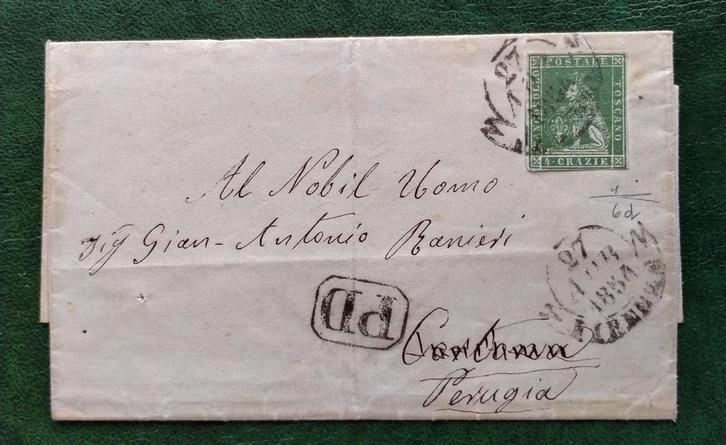 FRANCOBOLLO POSTALE TOSCANO
4·CRAZIE
27
Al Nobil Uomo
Sig Gian-Antonio Ranieri
4
6d
27
1854
FIRENZE
PD
Perugia